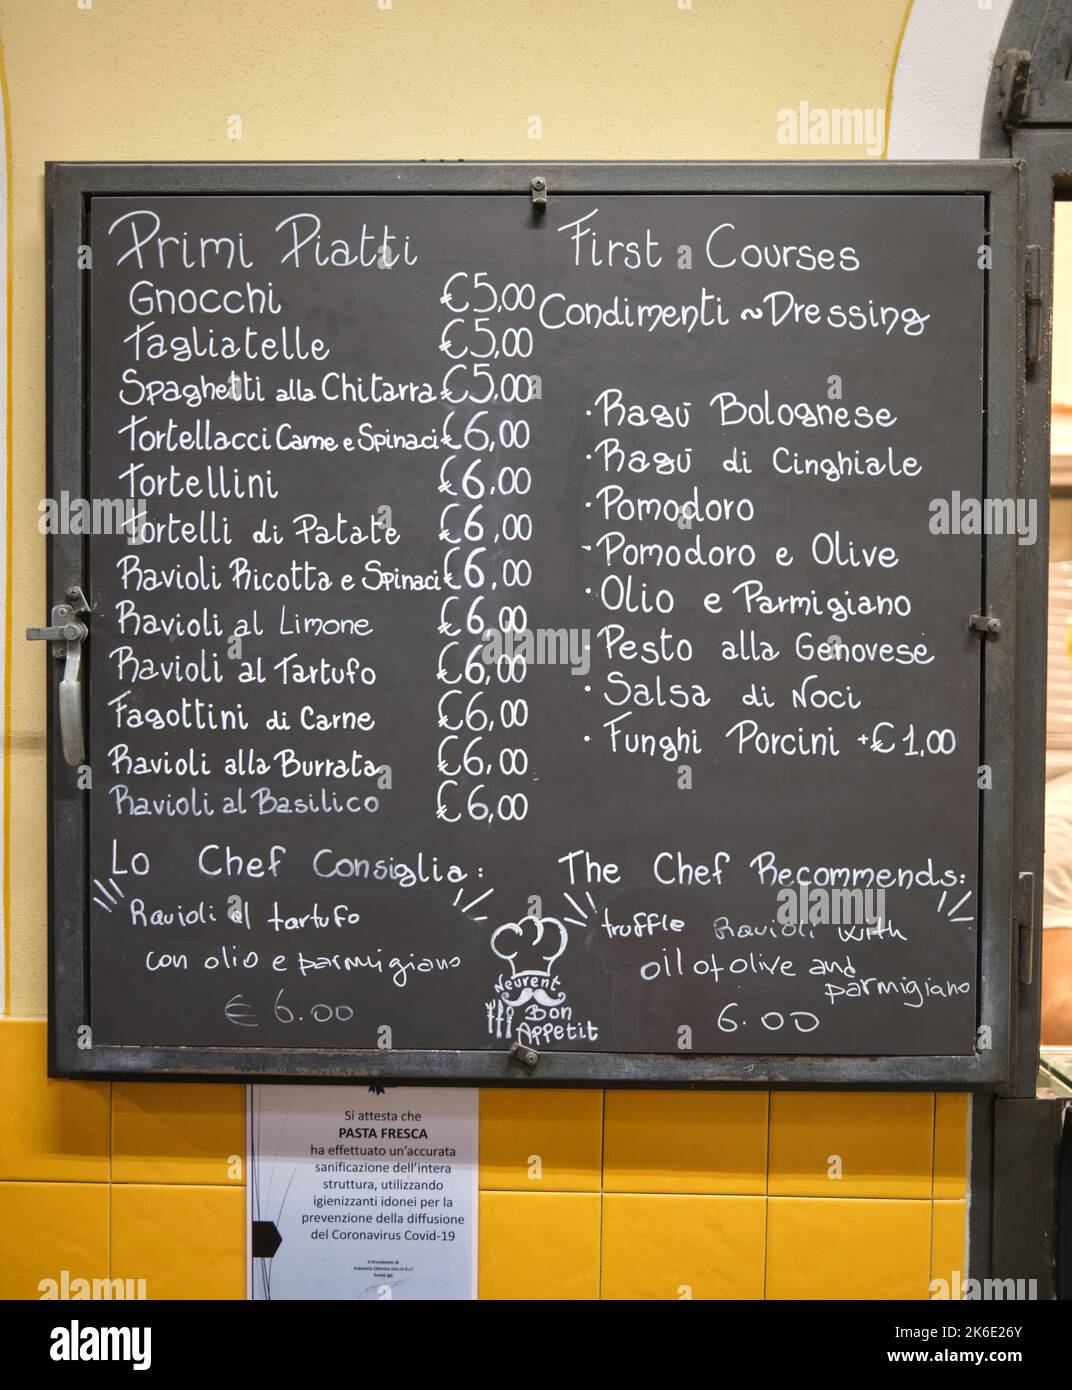 Primi Piatti
Gnocchi €5,00
Tagliatelle €5,00
Spaghetti alla Chitarra €5,00
Tortellacci Carne e Spinaci €6,00
Tortellini €6,00
Tortelli di Patate €6,00
Ravioli Ricotta e Spinaci €6,00
Ravioli al Limone €6,00
Ravioli al Tartufo €6,00
Fagottini di Carne €6,00
Ravioli alla Burrata €6,00
Ravioli al Basilico €6,00
First Courses
Condimenti ~ Dressing
· Ragù Bolognese
· Ragù di Cinghiale
· Pomodoro
- Pomodoro e Olive
· Olio e Parmigiano
· Pesto alla Genovese
· Salsa di Noci
· Funghi Porcini +€1,00
Lo Chef Consiglia:
Ravioli al tartufo
con olio e parmigiano
€ 6.00
The Chef Recommends:
truffle Ravioli with
oil of olive and
parmigiano
6.00
Neurent
Bon
Appetit
Si attesta che
PASTA FRESCA
ha effettuato un'accurata
sanificazione dell'intera
struttura, utilizzando
igienizzanti idonei per la
prevenzione della diffusione
del Coronavirus Covid-19
Il Presidente di
Industria Chimica
a alamy
alamy
Image ID: 2K6E26Y
www.alamy.com